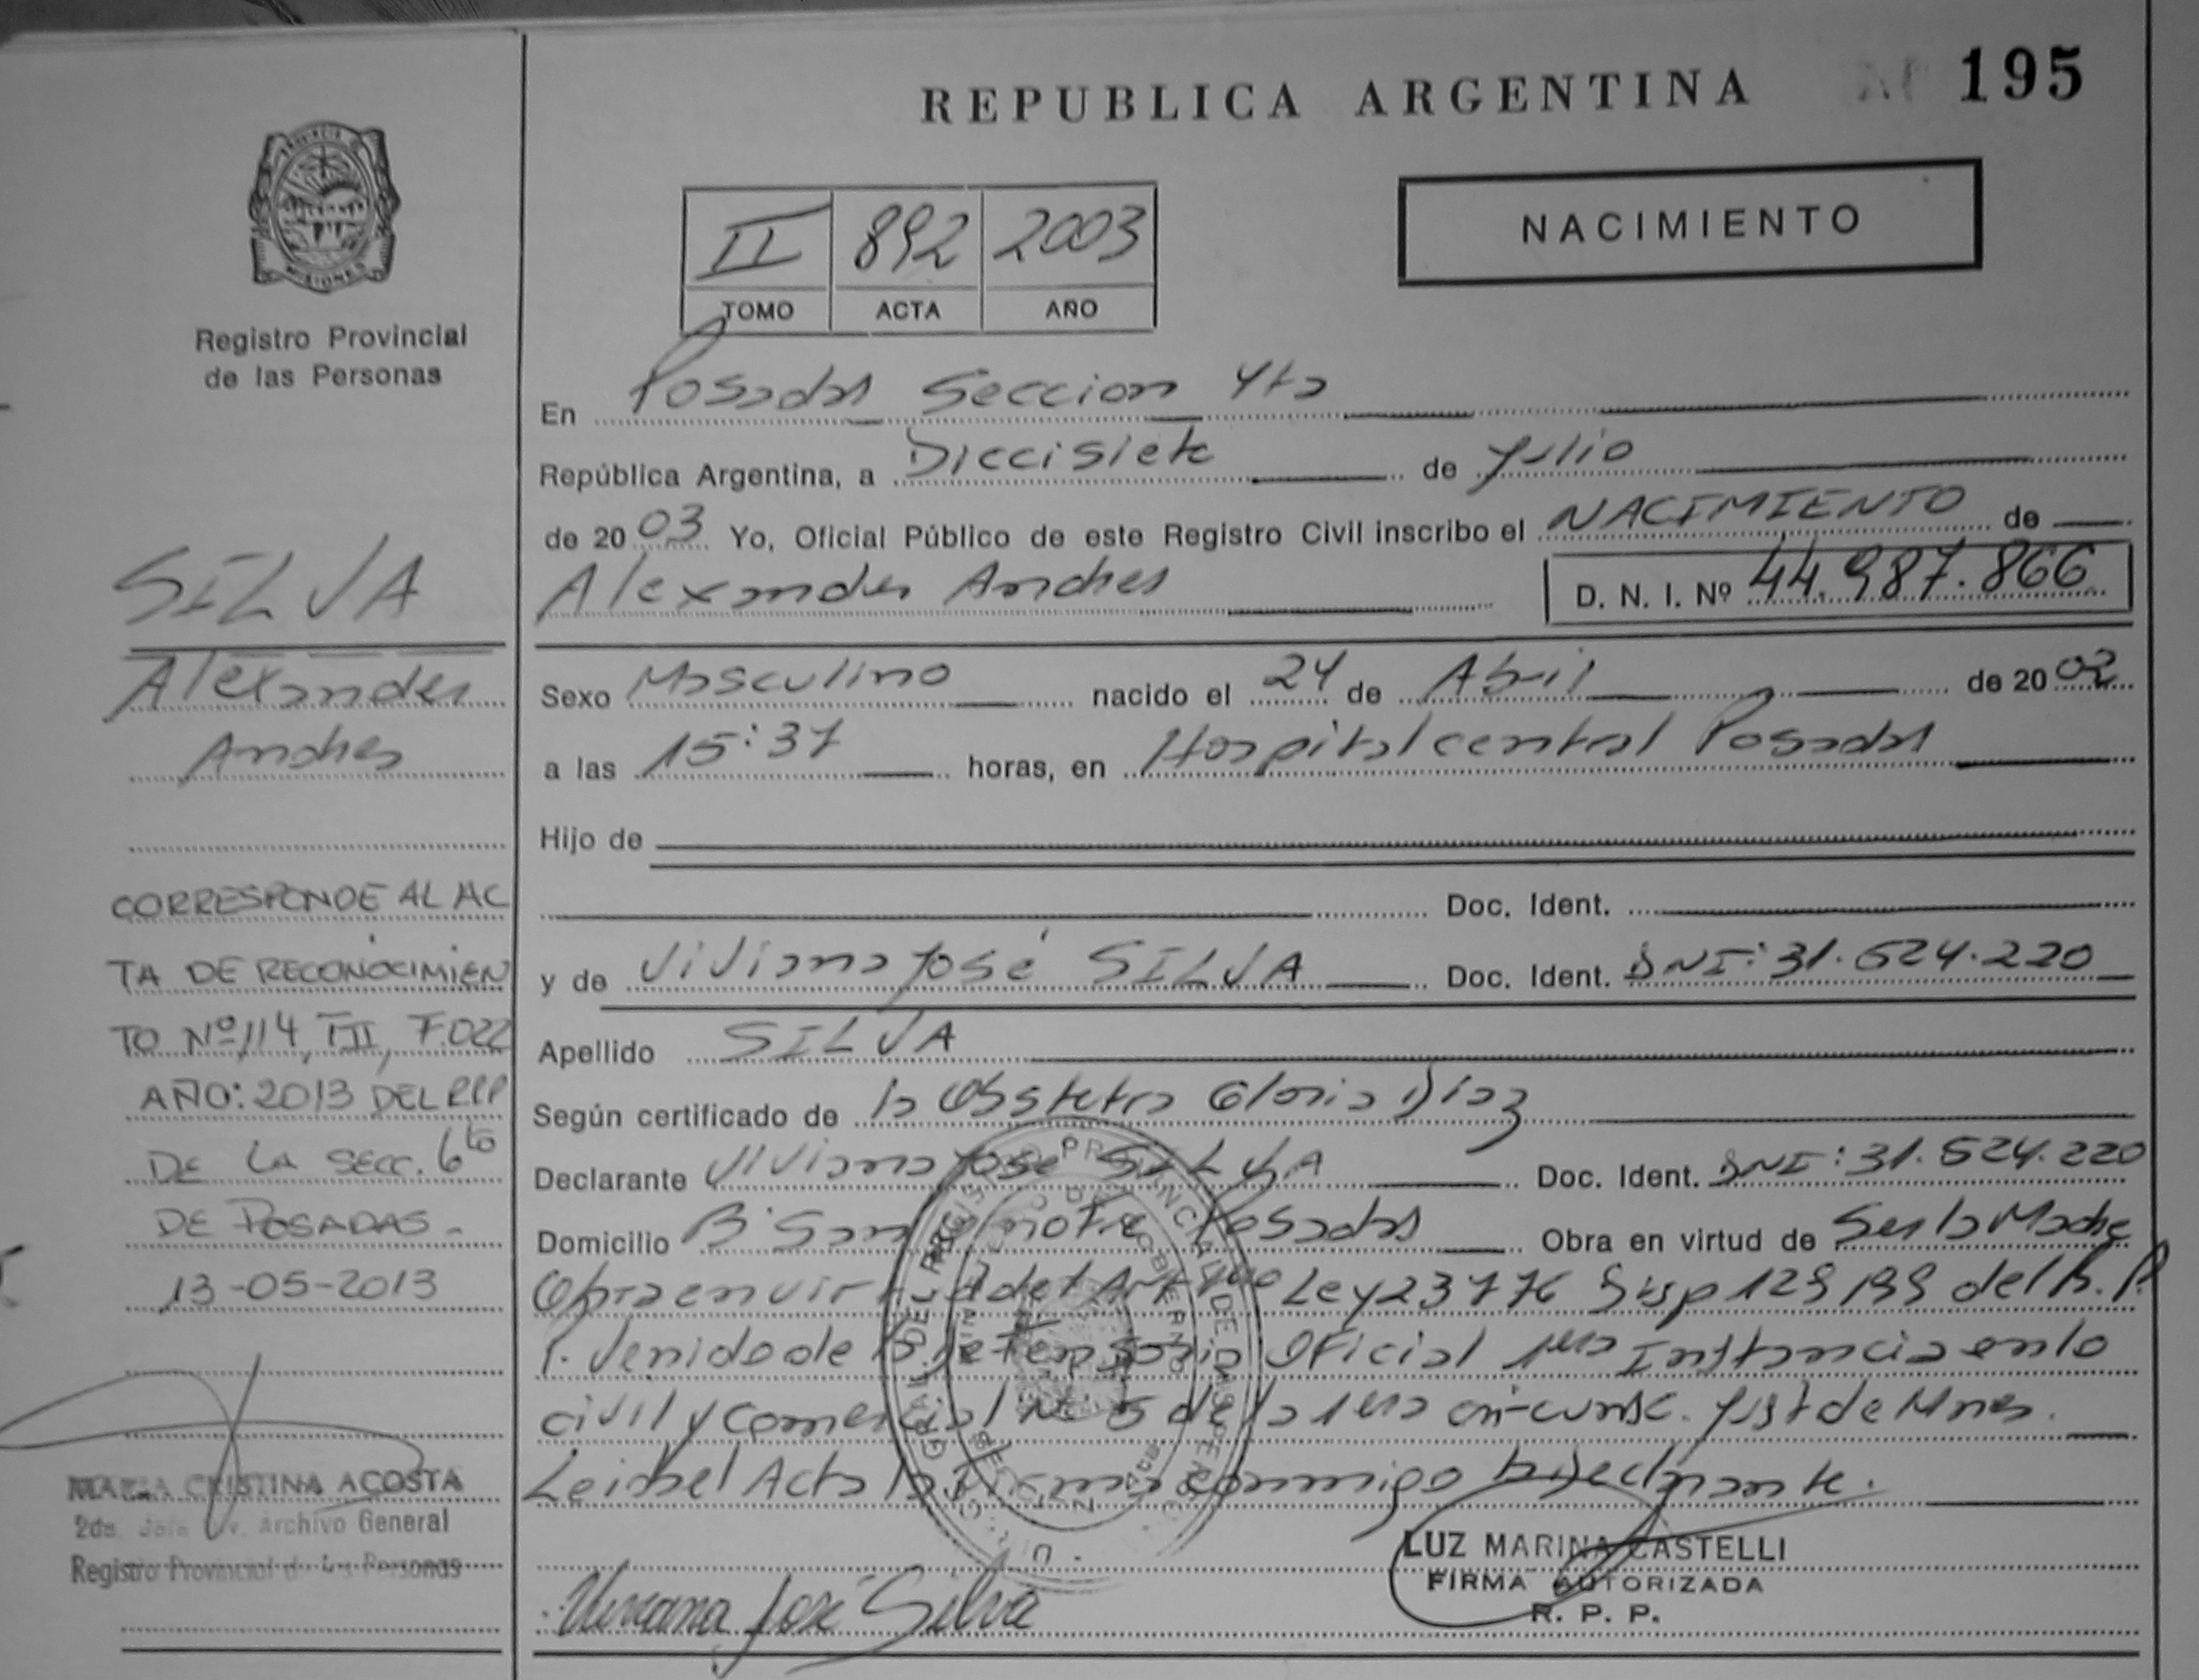 REPUBLICA ARGENTINA
Nº 195
PROVINCIA DE
MISIONES
Registro Provincial
de las Personas
NACIMIENTO
II 892 2003
TOMO ACTA AÑO
En Posadas Seccion 4ta
República Argentina, a Diecisiete de Julio
de 2003 Yo, Oficial Público de este Registro Civil inscribo el NACIMIENTO de
Alexander Andres D. N. I. Nº 44.987.866
Sexo Masculino nacido el 24 de Abril de 2002
a las 15:37 horas, en Hospital central Posadas
Hijo de
Doc. Ident.
y de Viviana José SILVA Doc. Ident. DNI: 31.524.220
Apellido SILVA
Según certificado de la Obstetra Gloria Diaz
Declarante Viviana José SILVA Doc. Ident. DNI: 31.524.220
Domicilio B° San Posadas Obra en virtud de Ser la Madre
Obra en virtud del Art Ley 23776 Disp 129/99 del R.P.
P. Venido de la Defensoria Oficial 1era Instancia en lo
civil y comercial Nº 5 de la 1era circunsc. Just de Mnes.
Leida el Acta la firma conmigo la declarante.
Viviana José Silva
LUZ MARINA CASTELLI
FIRMA AUTORIZADA
R. P. P.
SILVA
Alexander
Andres
CORRESPONDE AL AC
TA DE RECONOCIMIEN
TO Nº 114, TII, F.022
AÑO: 2013 DEL RPP
DE LA SECC. 6ta
DE POSADAS -
13-05-2013
MARIA CRISTINA ACOSTA
2da. Jefa Div. Archivo General
Registro Provincial de las Personas